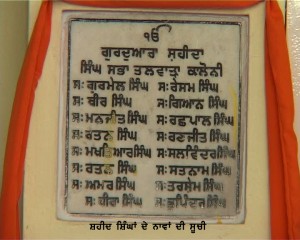 ੴ
ਗੁਰਦੁਆਰਾ ਸ਼ਹੀਦਾ
ਸਿੰਘ ਸਭਾ ਤਲਵਾੜਾ ਕਾਲੋਨੀ
ਸ: ਗੁਰਮੇਲ ਸਿੰਘ ਸ: ਰੇਸਮ ਸਿੰਘ
ਸ: ਬੀਰ ਸਿੰਘ ਸ: ਗਿਆਨ ਸਿੰਘ
ਸ: ਮਨਜੀਤ ਸਿੰਘ ਸ: ਰਛਪਾਲ ਸਿੰਘ
ਸ: ਰਤਨ ਸਿੰਘ ਸ: ਰਣਜੀਤ ਸਿੰਘ
ਸ: ਮਖਤਿਆਰ ਸਿੰਘ ਸ: ਸਲਵਿੰਦਰ ਸਿੰਘ
ਸ: ਰਤਨ ਸਿੰਘ ਸ: ਸਤਨਾਮ ਸਿੰਘ
ਸ: ਅਮਰ ਸਿੰਘ ਸ: ਤਰਸੇਮ ਸਿੰਘ
ਸ: ਹੀਰਾ ਸਿੰਘ ਸ: ਭੁਪਿੰਦਰ ਸਿੰਘ
ਸ਼ਹੀਦ ਸ਼ਿੰਘਾਂ ਦੇ ਨਾਵਾਂ ਦੀ ਸੂਚੀ